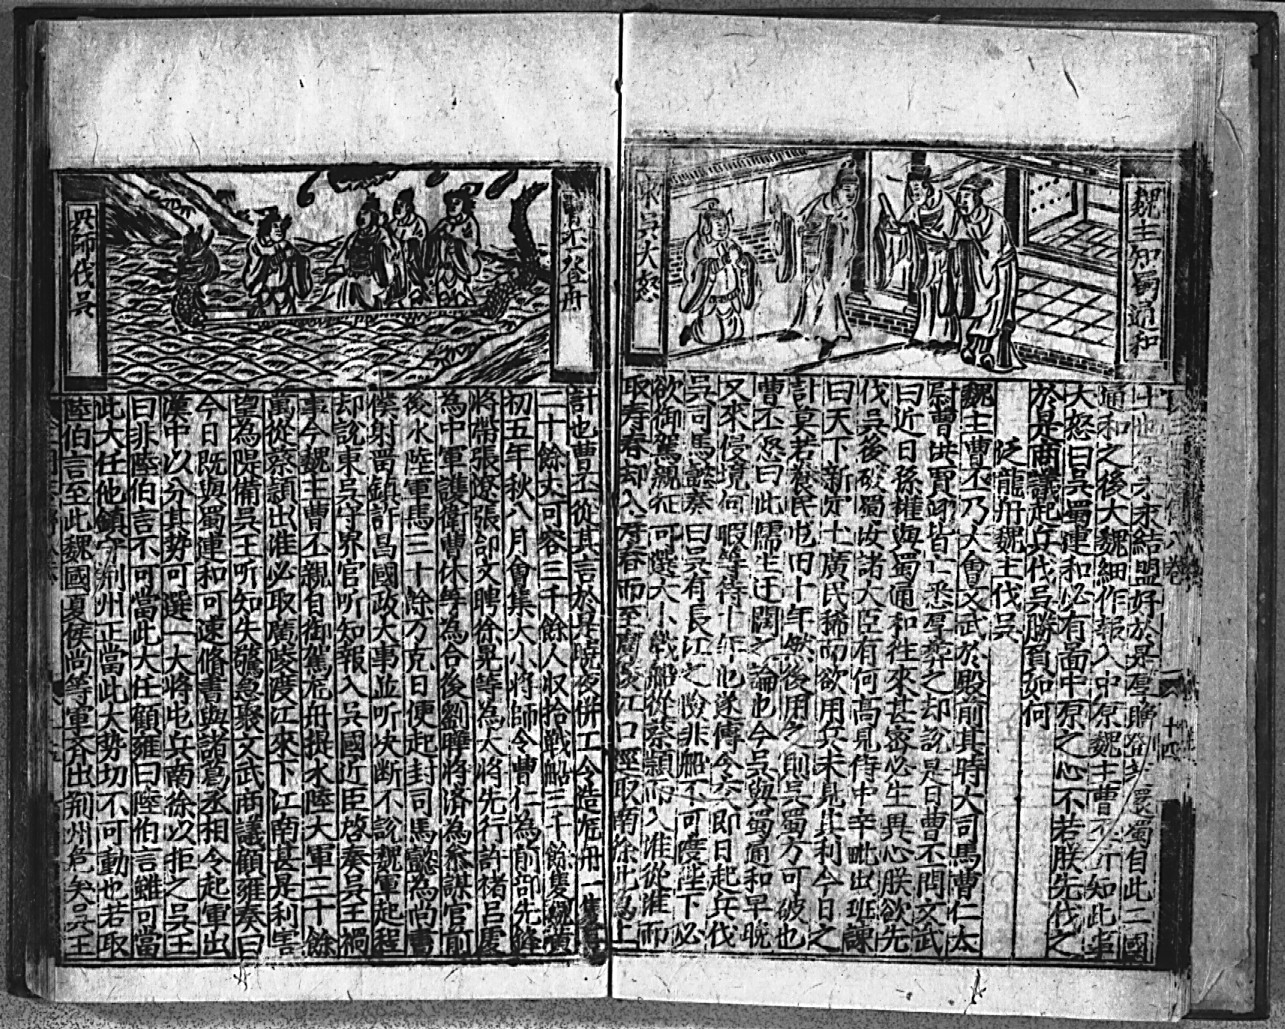 魏主知蜀通和
東吳大怒
通和之後大魏細作報入中原魏主曹丕知此
大怒曰吳蜀連和必有啚中原之心不若朕先伐之
於是商議起兵伐吳勝負如何
泛龍舟魏主伐吳
魏主曹丕乃大會文武於殿前其時大司馬曹仁太
尉曹洪賈詡皆亡悉厚葬之却說是日曹丕問文武
曰近日孫權與蜀通和往來甚密必生異心朕欲先
伐吳後破蜀汝諸大臣有何高見侍中辛毗出班諫
曰天下新定土廣民稀而欲用兵未見其利今日之
計莫若養民屯田十年然後用之則吳蜀方可破也
曹丕怒曰此儒生迂闊之論也今吳與蜀通和早晚
又來侵境何暇等待十年也遂傳令文即日起兵伐
吳司馬懿奏曰吳有長江之險非船不可度陛下必
欲御駕親征可選大小戰船從蔡頴而入淮從淮而
取壽春却入壽春而至廣陵江口逕取南徐此為上
曹丕登舟
興師伐吳
計也曹丕從其言於是曉夜併工令造龍舟一隻長
二十餘丈可容三千餘人収拾戰船三千餘隻魏黃
初五年秋八月會集大小將師令曹仁為前部先鋒
將帶張遼張郃文聘徐晃等為大將先行許褚吕虔
為中軍護衛曹休等為合後劉曄將済為參謀官前
後水陸軍馬三十餘万克日便起封司馬懿為尚書
僕射畱鎮許昌國政大事並听决断不說魏軍起程
却說東吳守界官听知報入吳國近臣啓奏吳王禍
事今魏主曹丕親自御駕龙舟提水陸大軍三十餘
萬從蔡頴出淮必取廣陵度江來下江南甚是利害
望為隄備吳王听知失驚急聚文武商議顧雍奏曰
今日既與蜀連和可速脩書與諸葛丞相令起軍出
漢中以分其势可選一大將屯兵南徐以拒之吳王
曰非陸伯言不可當此大任顧雍曰陸伯言雖可當
此大任他鎮守荊州正當此大势切不可動也若取
陸伯言至此魏國夏侯尚等軍齐出荊州危矣吳王